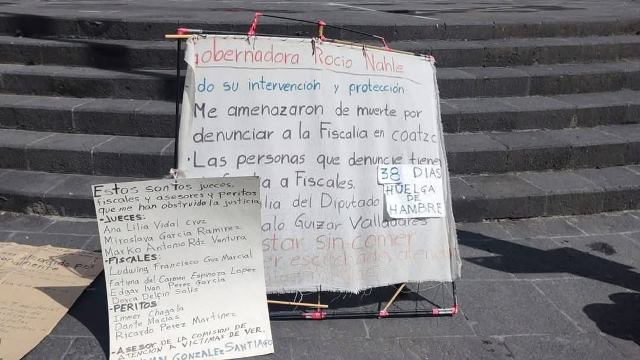 gobernadora Rocío Nahle
do su intervención y protección
Me amenazaron de muerte por
denunciar a la Fiscalia en coatzc
• Las personas que denuncie tienen
a Fiscales.
lia del Diputado
alo Guizar Valladares
star sin comer
38 DIAS
HUELGA
DE
HAMBRE
Estos son los jueces,
fiscales y asesores y peritos
que me han obstruido la justicia
-JUECES:
Ana Lilia Vidal Cruz
Miroslava García Ramírez
Marko Antonio Rdz Ventura
-FISCALES:
Ludwing Francisco Guz Marcial
Fatima del Carmen Espinoza Lopez
Edgar Ivan Perez García
Dorca Delfin Solis
-PERITOS
Immer Chagala
Dante Macias
Ricardo Perez Martinez
-ASESOR DE LA COMISION DE
ATENCIÓN A VÍCTIMAS DE VER.
IVAN GONZALEZ SANTIAGO